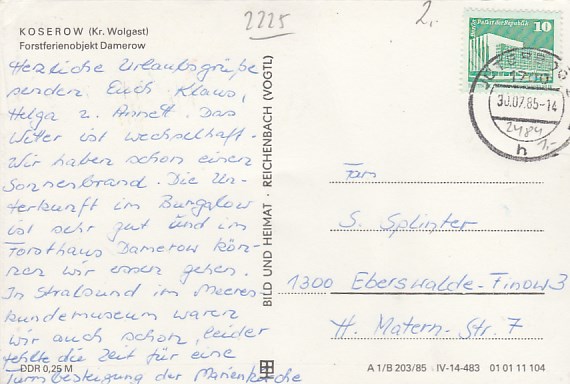 2225
2,-
KOSEROW (Kr. Wolgast)
Forstferienobjekt Damerow
Herzliche Urlaubsgrüße
senden Euch Klaus,
Helga u. Annett. Das
Wetter ist wechselhaft.
Wir haben schon einen
Sonnenbrand. Die Un-
terkunft im Bungalow
ist sehr gut und im
Forsthaus Damerow kön-
nen wir essen gehen.
In Stralsund im Meeres
kundemuseum waren
wir auch schon, leider
fehlte die Zeit für eine
Turmbesteigung der Marienkirche
DDR 0,25 M
BILD UND HEIMAT · REICHENBACH (VOGTL)
Palast der Republik
10
DDR
30.07.85-14
h
1,-
Fam
S. Splinter
1300 Eberswalde-Finow 3
H. Matern-Str. 7
A 1/B 203/85 IV-14-483 01 01 11 104